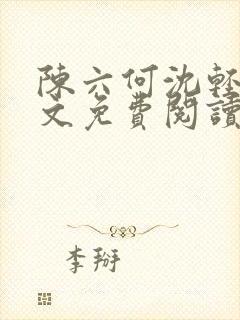 陳六何沈輕
文免費閱讀
李掰